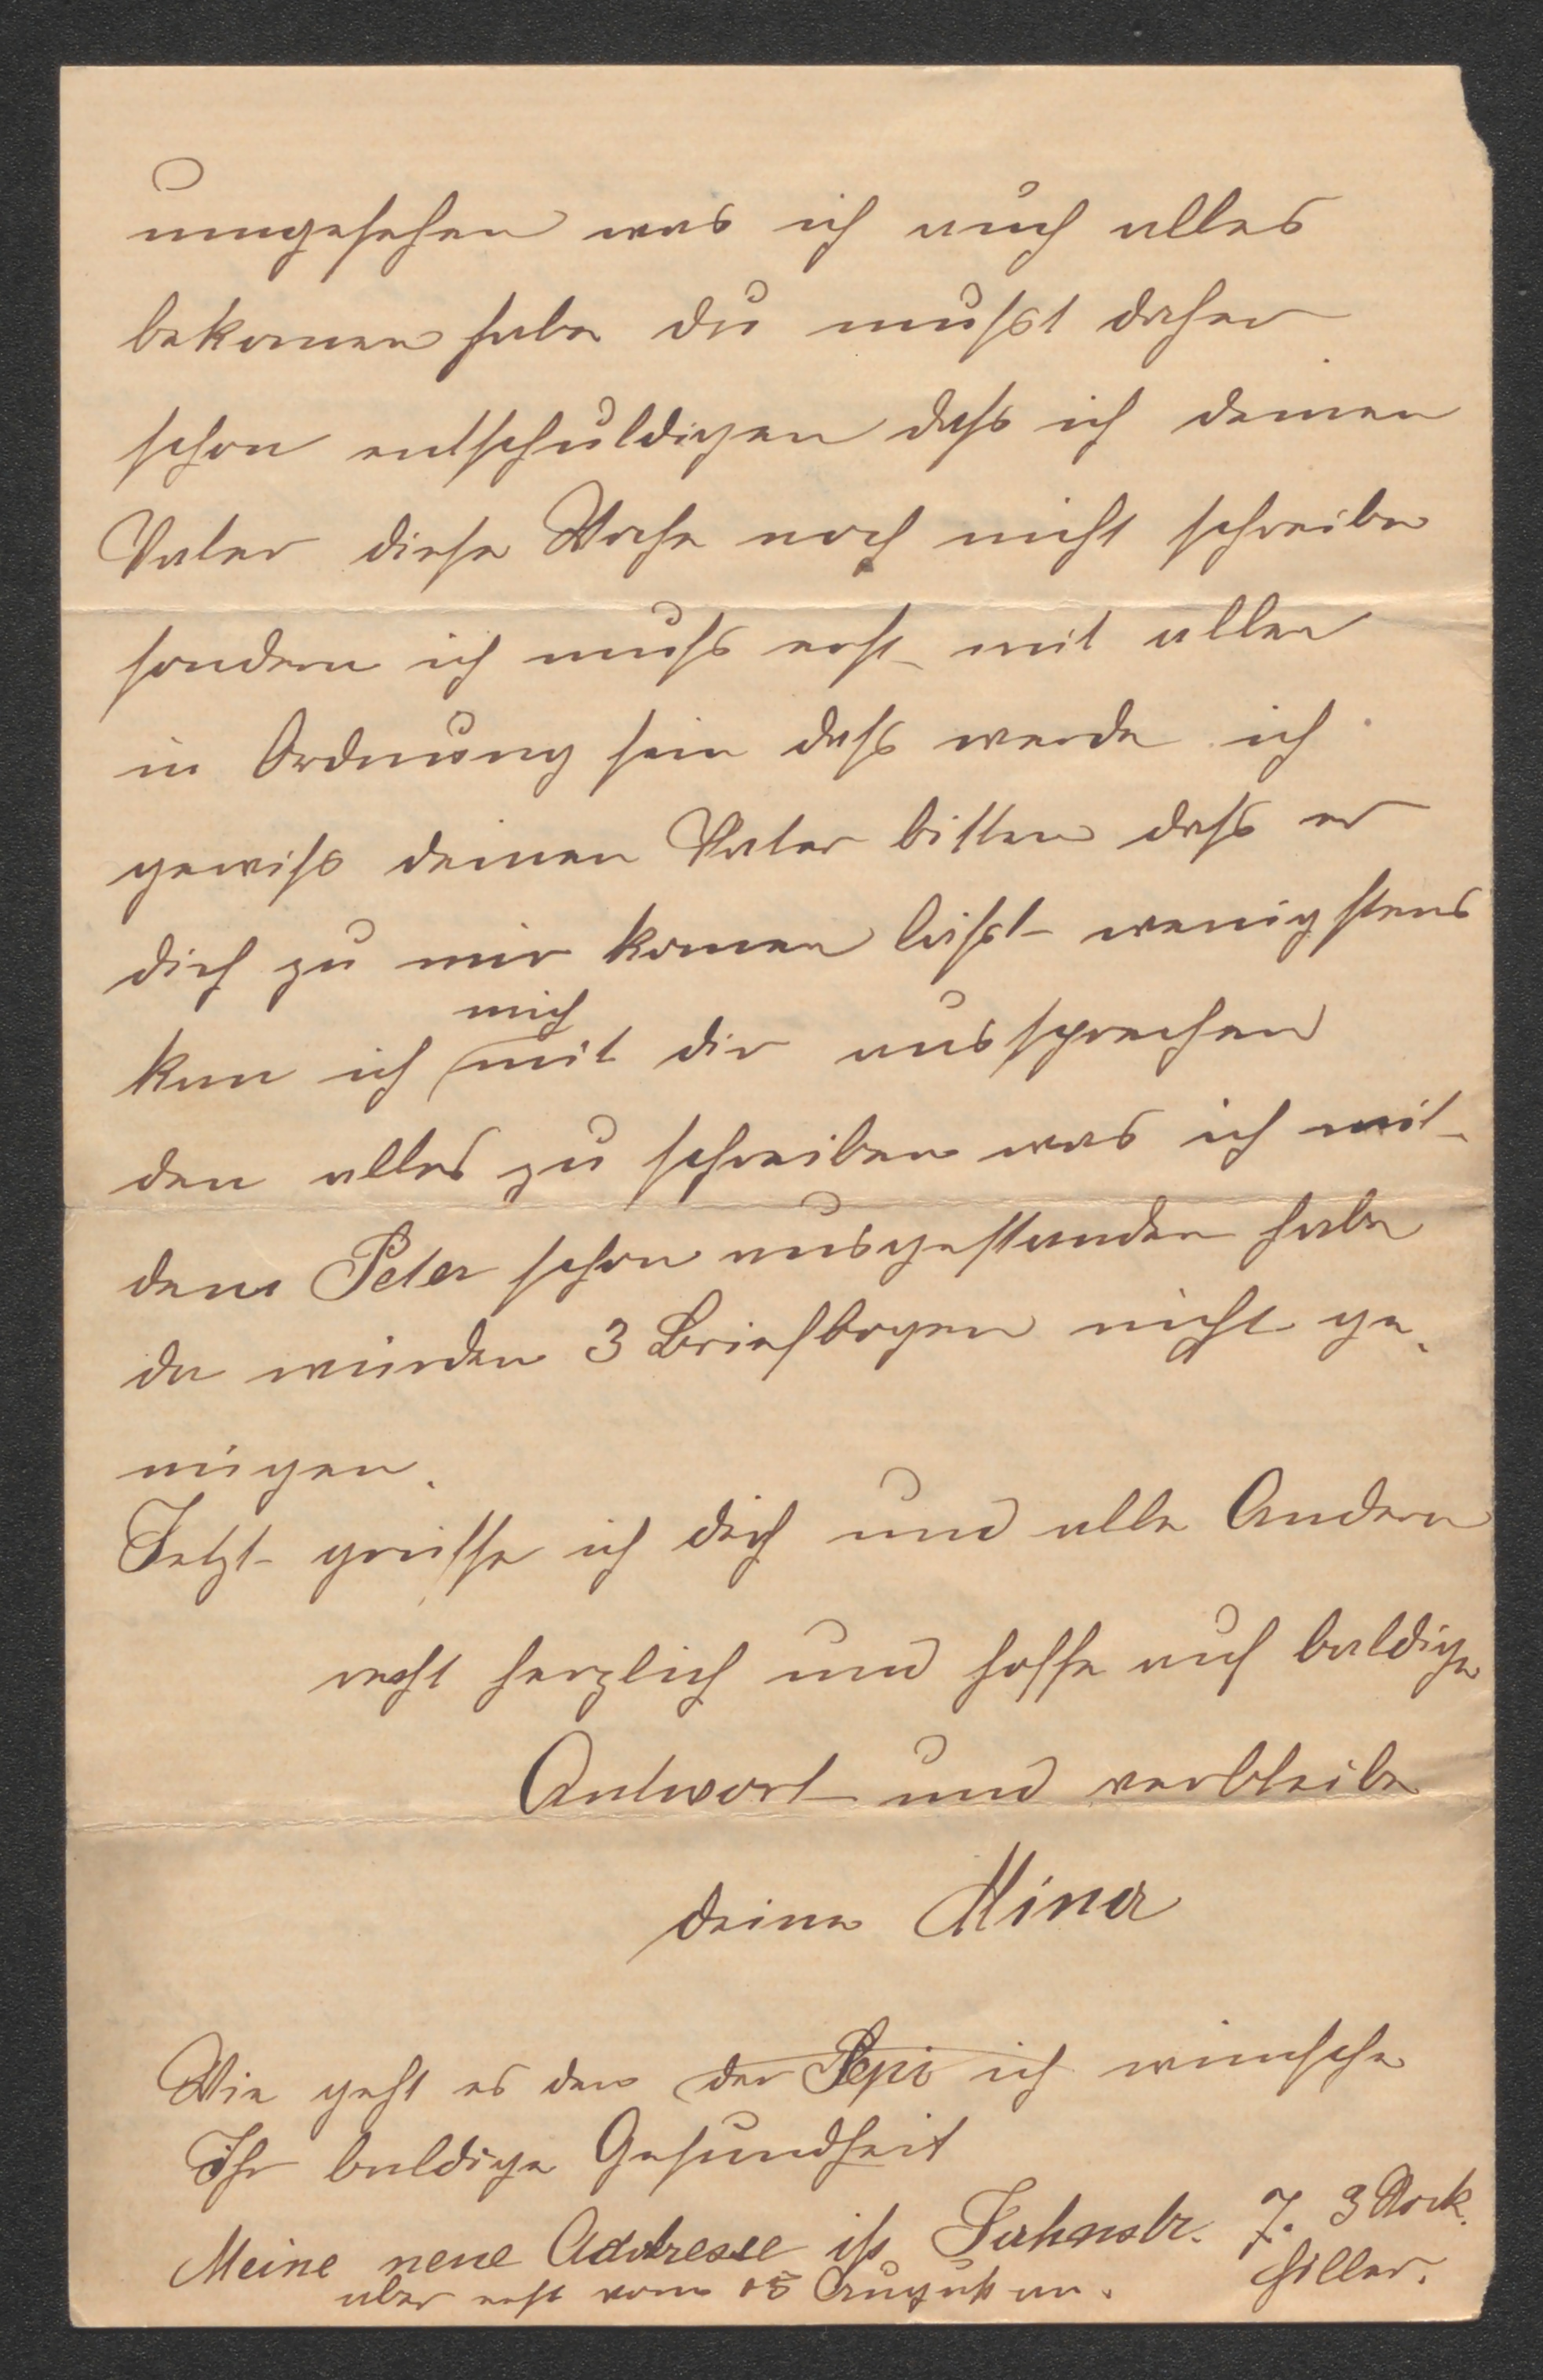 umgesehen was ich auch alles
bekomen habe du mußt daher
schon entschuldigen daß ich deinen
Vater diese Woche noch nicht schreibe
sondern ich muß erst mit allen
in Ordnung sein daß werde ich
gewiß deinen Vater bitten daß er
dich zu mir komen läßt wenigstens
mich
kan ich mit dir aussprechen
den alles zu schreiben was ich mit
dem Peter schon ausgestanden habe
da würden 3 Briefbogen nicht ge-
nügen.
Jetzt grüsse ich dich und alle Andern
recht herzlich und hoffe auf baldige
Antwort und verbleibe
deine Mina
Wie geht es den der Pepi ich wünsche
Ihr baldige Gesundheit
Meine neue Addresse ist Jahnstr. 7. 3 Stock.
aber erst vom 15 August an. Hiller.